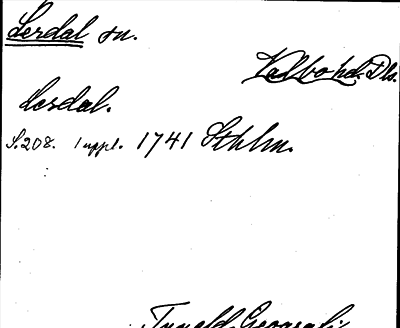 Lerdal sn.
Valbo hd. Dls.
Lerdal.
S.208. 1 uppl. 1741 Sthlm.
Tuneld, Geografi